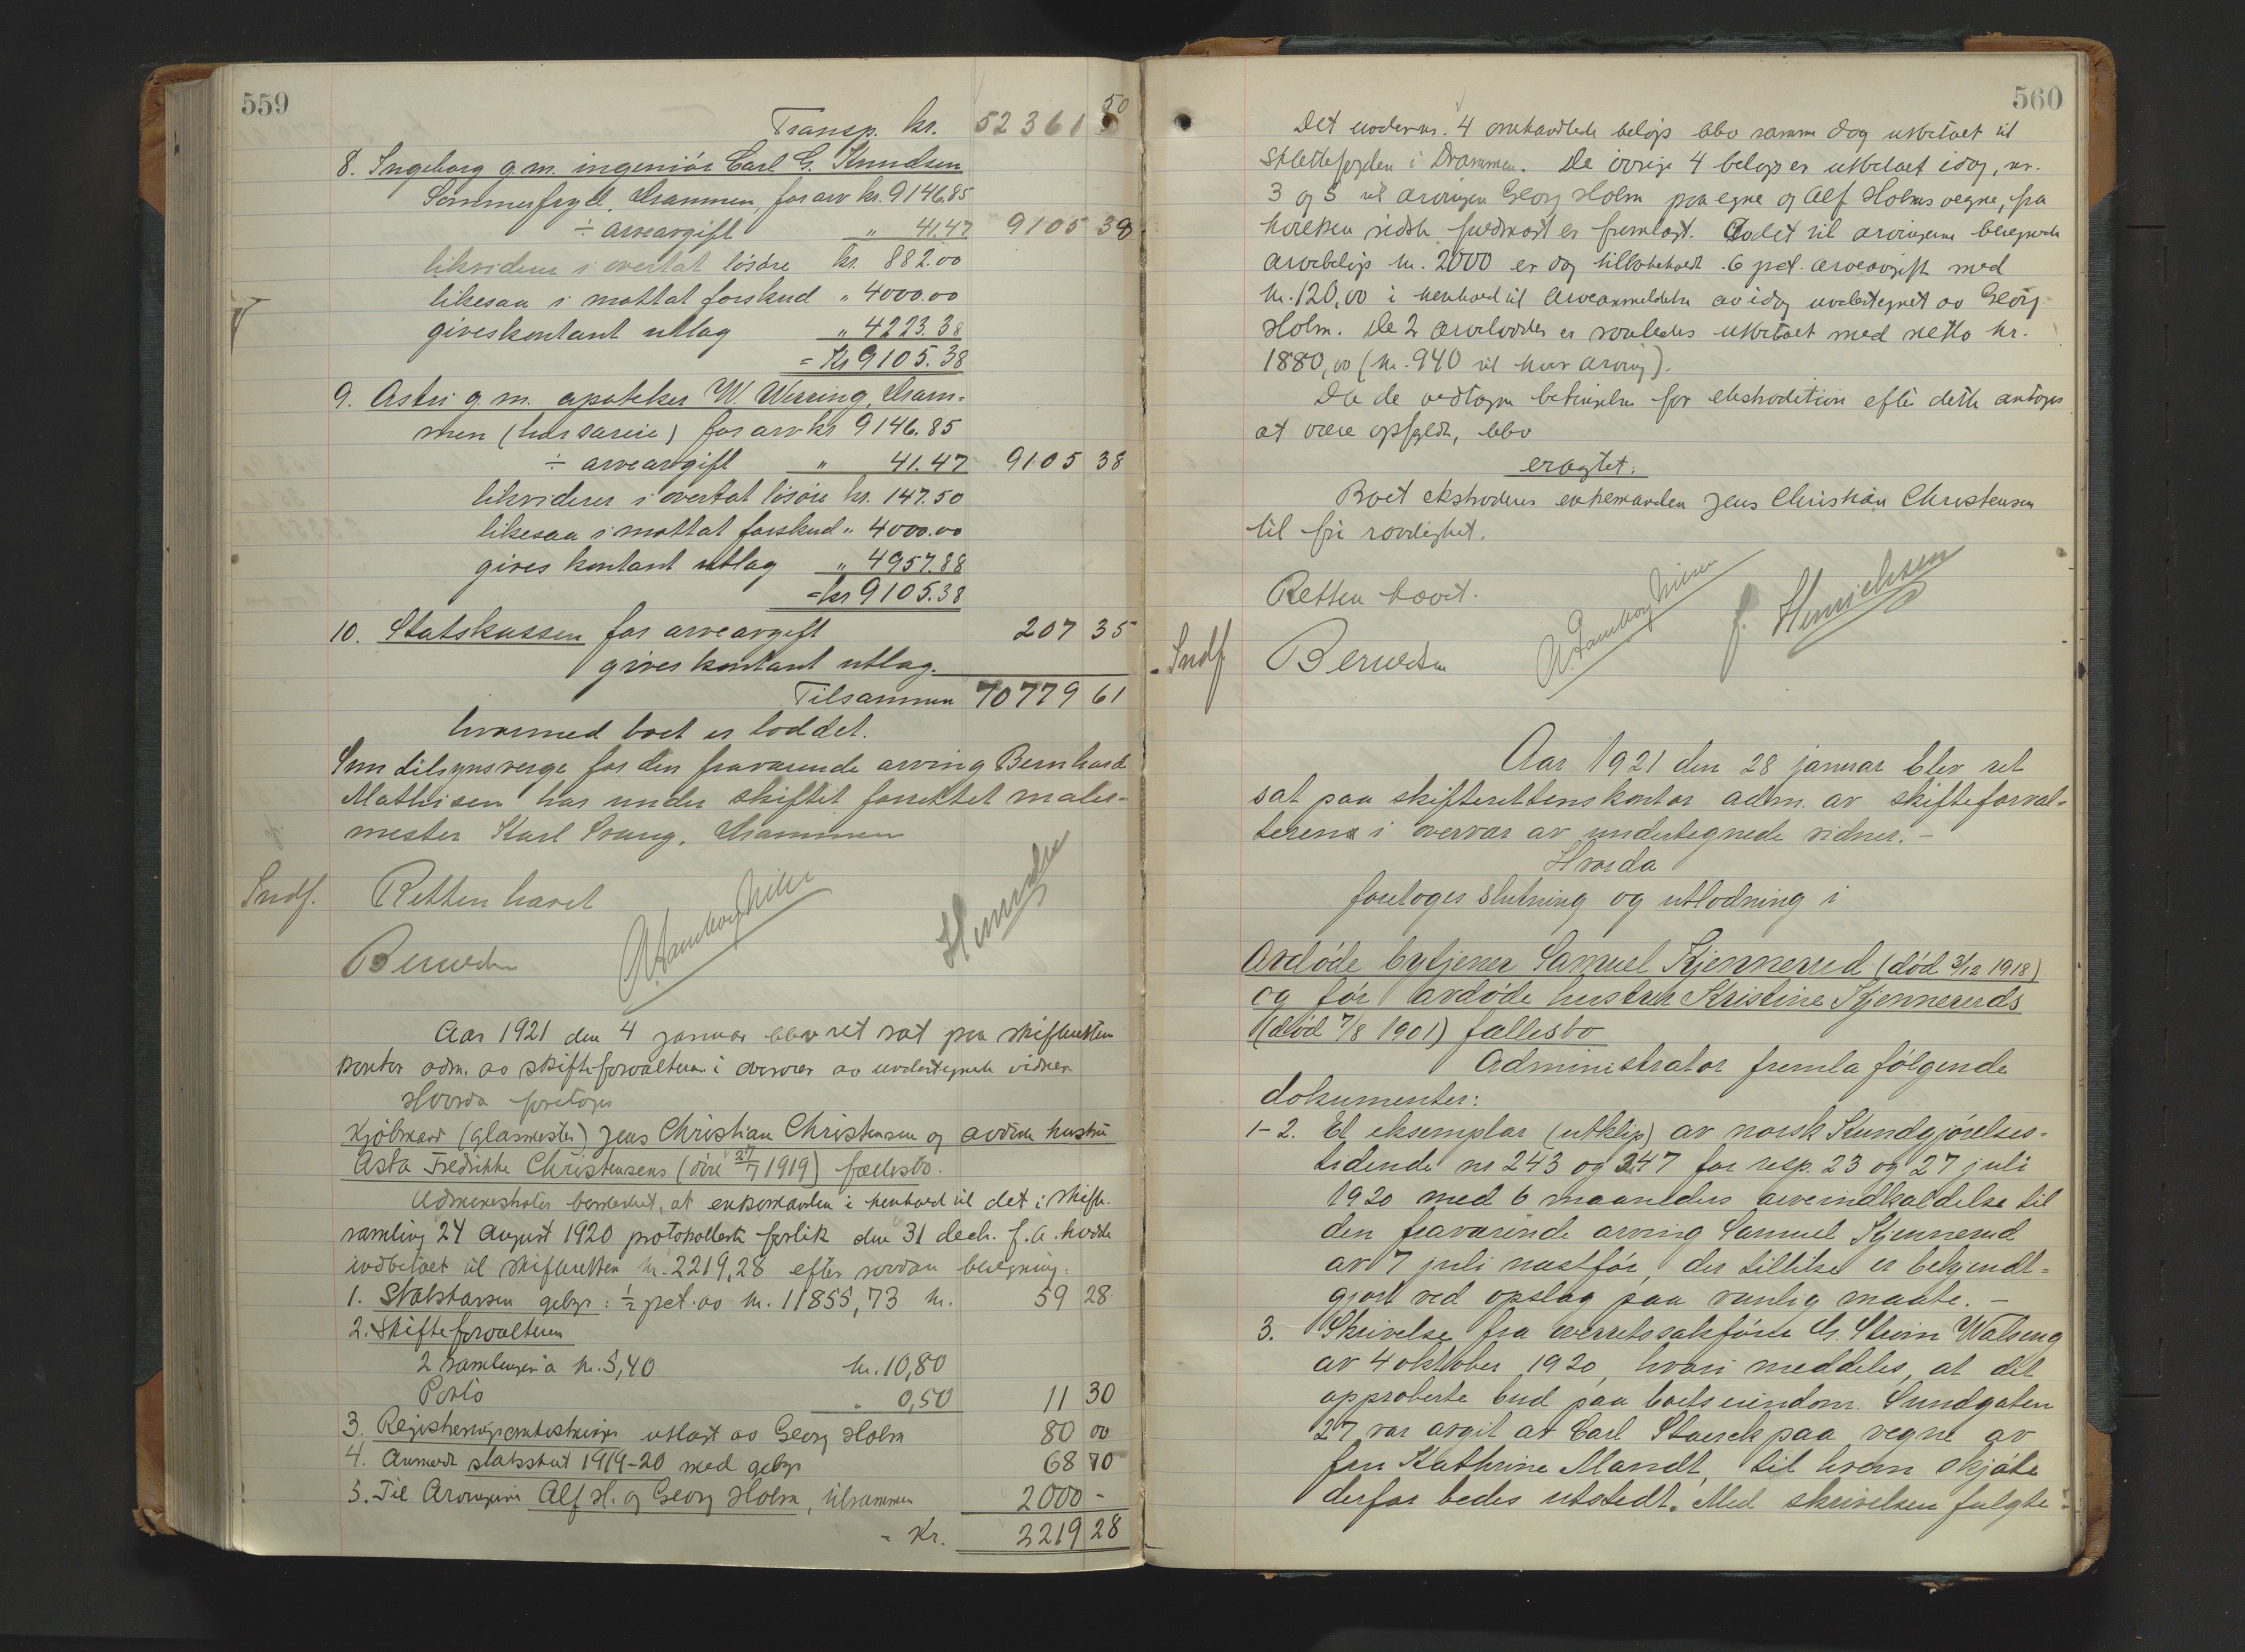 559
Transp. kr. 52361 50
8. Ingeborg g.m. ingeniör Carl G. Knudsen
Sommerfryd, Drammen, for arv kr. 9146.85
÷ arveavgift " 41.47 9105 38
likvideres i overtat lösöre kr. 882.00
likesaa i mottat forskud " 4000.00
gives kontant utlag " 4223.38
= Kr 9105.38
9. Astri g.m. apoteker W. Werring, Dram-
men for arv kr 9146.85
÷ arveavgift " 41.47 9105 38
likvideres i overtat lösöre kr. 147.50
likesaa i mottat forskud " 4000.00
gives kontant utlag " 4957.88
= kr 9105.38
10. Statskassen for arveavgift 207 35
gives kontant utlag.
Tilsammen 70779 61
hvormed boet er loddet.
Som tilsynsverge for den fraværende arving Bernhard
Mathisen har under skiftet forrettet maler-
mester Karl Svang, Drammen
Indf. Retten hævet
Aar 1921 den 4 januar blev ret sat paa skifteretten
kontor adm. av skifteforvalteren i overvær av undertegnede vidner
Hvorda foretoges
Kjöbmand (glasmester) Jens Christian Christensen og avdøde hustru
Asta Fredrikke Christensens (død 27/7 1919) fællesbo.
Administrator bemerket, at enkemanden i henhold til det i skifte-
samling 24 august 1920 protokollerte forlik den 31 decbr. f.a. hadde
indbetalt til skifteretten kr. 2219,28 efter saadan beregning:
1. Statskassen gebyr: ½ pct. av kr. 11855,73 kr. 59 28
2. Skifteforvalteren
2 samlinger à kr. 5,40 kr. 10,80
Porto " 0,50 11 30
3. Registreringsomkostninger utlagt av Georg Holm 80 00
4. Anmeldt statsskat 1919-20 med gebyr 68 70
5. Til Arvingerne Alf H. og Georg Holm, tilsammen 2000 -
= Kr. 2219 28
560
Det under nr. 4 omhandlede beløp blev samme dag utbetalt til
skattefogden i Drammen. De øvrige 4 beløp er utbetalt idag, nr.
3 og 5 til arvingen Georg Holm paa egne og Alf Holms vegne, fra
hvilken sidste fuldmagt er fremlagt. I det til arvingerne beregnede
arvebeløp kr. 2000 er dog tilbakeholdt 6 pct. arveavgift med
kr. 120,00 i henhold til Arveanmeldelse av idag undertegnet av Georg
Holm. De 2 arvelodder er saaledes utbetalt med netto kr.
1880,00 (kr. 940 til hver arving).
Da de vedtagne betingelser for ekstradition efter dette antoges
at være opfyldt, blev
eragtet:
Boet ekstraderes enkemanden Jens Christian Christensen
til fri raadighet.
Retten hævet.
Indf.
J. Hinrichsen
Aar 1921 den 28 januar blev ret
sat paa skifterettens kontor adm. av skifteforval-
teren i overvær av undertegnede vidner. -
Hvorda
foretoges slutning og utlodning i
Avdøde bytjener Samuel Kjennerud (död 3/12 1918)
og för avdøde hustru Kristine Kjenneruds
(död 7/8 1901) fællesbo
Administrator fremla fölgende
dokumenter:
1-2. Et eksemplar (utklip) av norsk Kundgjörelses-
tidende nr 243 og 247 for resp. 23 og 27 juli
1920 med 6 maaneders arveindkaldelse til
den fraværende arving Samuel Kjennerud
av 7 juli næstför, der tillike er bekjendt-
gjort ved opslag paa vanlig maate. -
3. Skrivelse fra overretssakförer Hr. Stein Walseng
av 4 oktober 1920, hvori meddeles, at det
approberte bud paa boets eiendom Sundgaten
27 var avgit av Carl Staerck paa vegne av
fru Kathrine Mandt, til hvem skjöte
derfor bedes utstedt. Med skrivelsen fulgte: